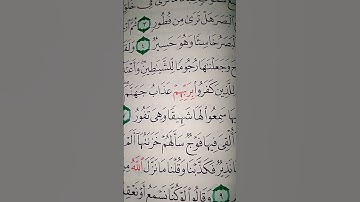 ٱلْبَصَرَ هَلْ تَرَىٰ مِن فُطُورٍ ٣ ثُمَّ
ٱلْبَصَرُ خَاسِئًا وَهُوَ حَسِيرٌ ٤
وَجَعَلْنَٰهَا رُجُومًا لِّلشَّيَٰطِينِ
لِلَّذِينَ كَفَرُوا۟ بِرَبِّهِمْ عَذَابُ جَهَنَّمَ
سَمِعُوا۟ لَهَا شَهِيقًا وَهِىَ تَفُورُ
أُلْقِىَ فِيهَا فَوْجٌ سَأَلَهُمْ خَزَنَتُهَآ أَلَمْ
نَذِيرٌ فَكَذَّبْنَا وَقُلْنَا مَا نَزَّلَ ٱللَّهُ مِن
٩ وَقَالُوا۟ لَوْ كُنَّا نَسْمَعُ أَوْ نَعْقِلُ